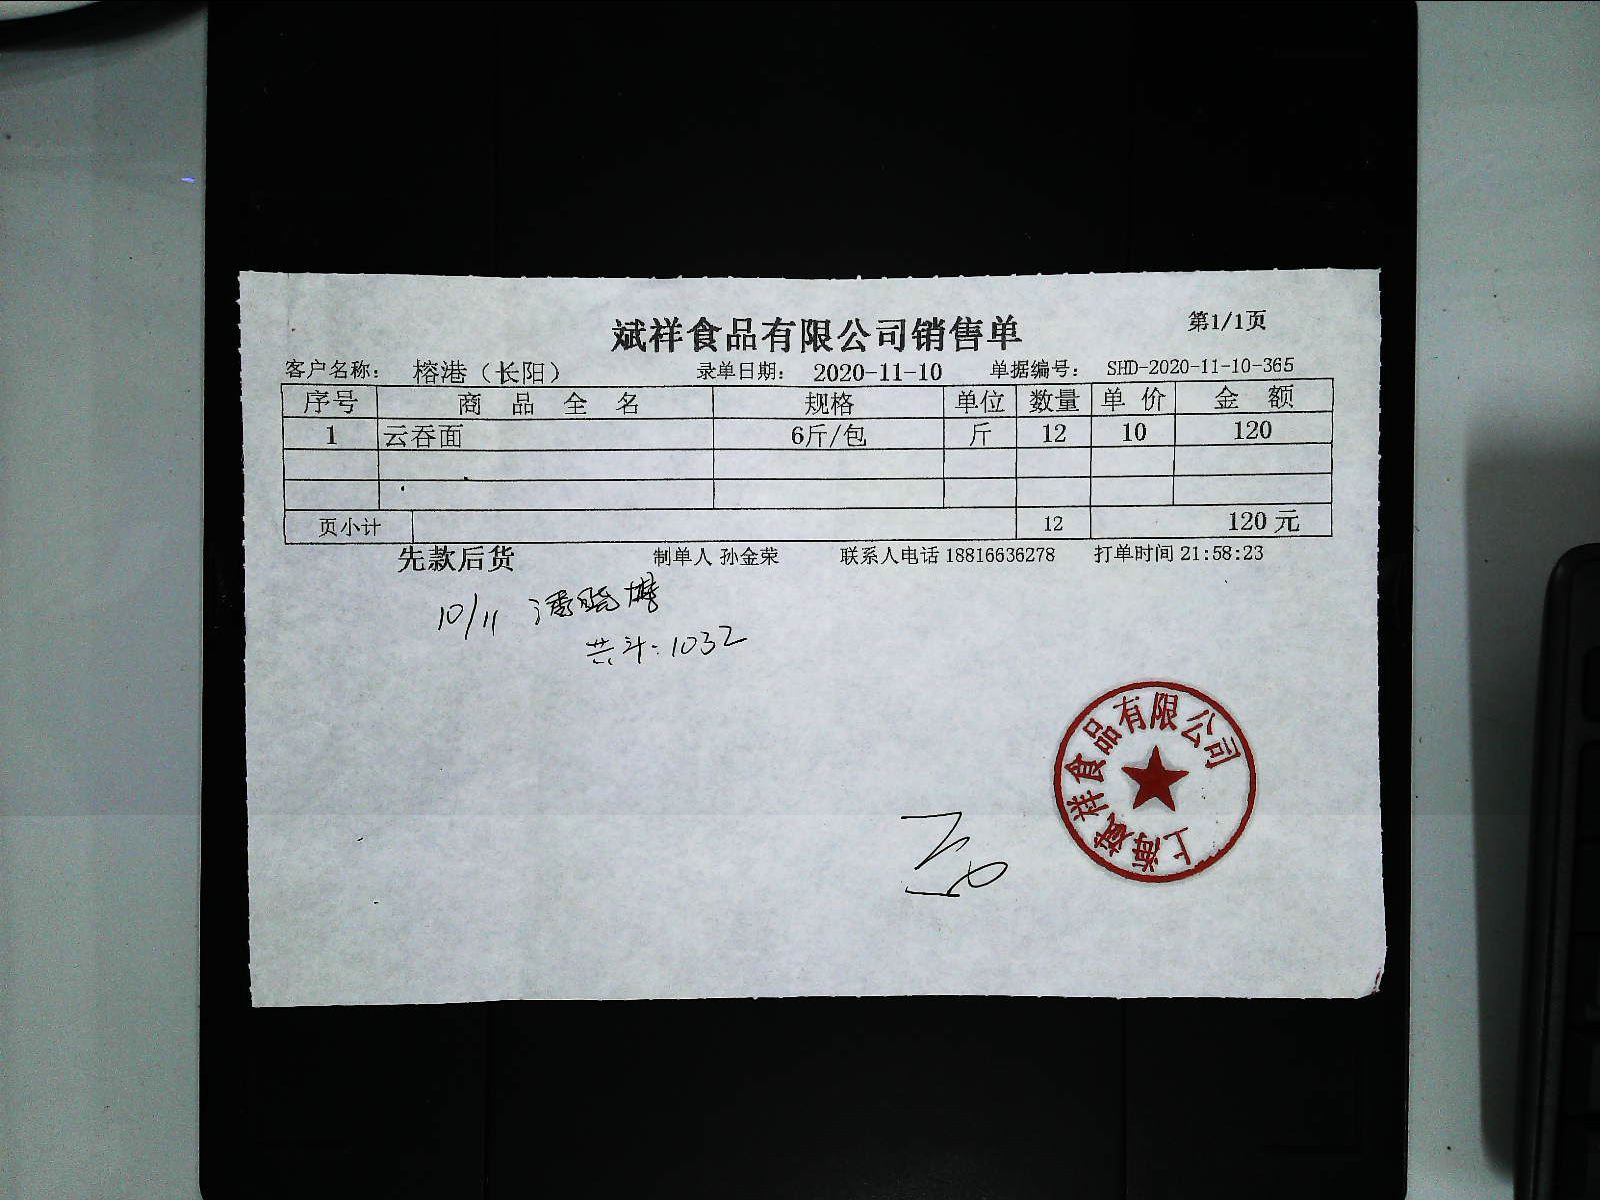 斌祥食品有限公司销售单
第1/1页
客户名称： 榕港（长阳） 录单日期： 2020-11-10 单据编号： SHD-2020-11-10-365
序号 商品全名 规格 单位 数量 单价 金额
1 云吞面 6斤/包 斤 12 10 120
页小计 12 120元
先款后货 制单人 孙金荣 联系人电话 18816636278 打单时间 21:58:23
10/11 潘晓
共斗：1032
上海斌祥食品有限公司